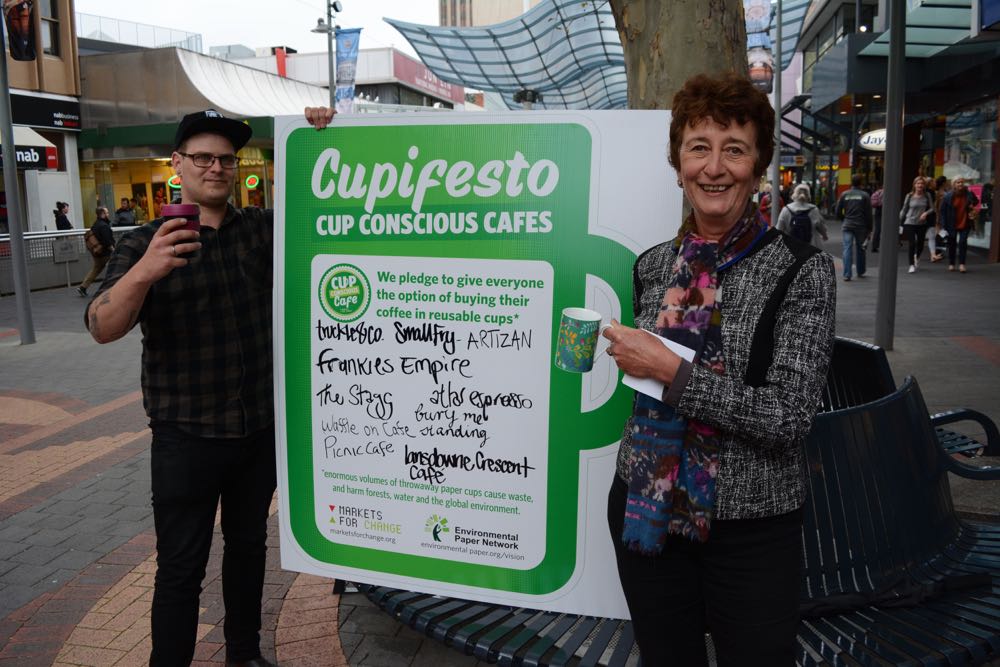 Cupifesto
CUP CONSCIOUS CAFES
CUP
CONSCIOUS
Cafe
We pledge to give everyone
the option of buying their
coffee in reusable cups*
truckle&co. Small Fry- ARTIZAN
frankies Empire
The Stagg atlas espresso
bury me
Waffle on Cafe standing
Picnic Cafe lansdowne Crescent
cafe
*enormous volumes of throwaway paper cups cause waste,
and harm forests, water and the global environment.
MARKETS
FOR CHANGE
marketsforchange.org
Environmental
Paper Network
environmental paper.org/vision
nabbusiness
nab
nab
Jay